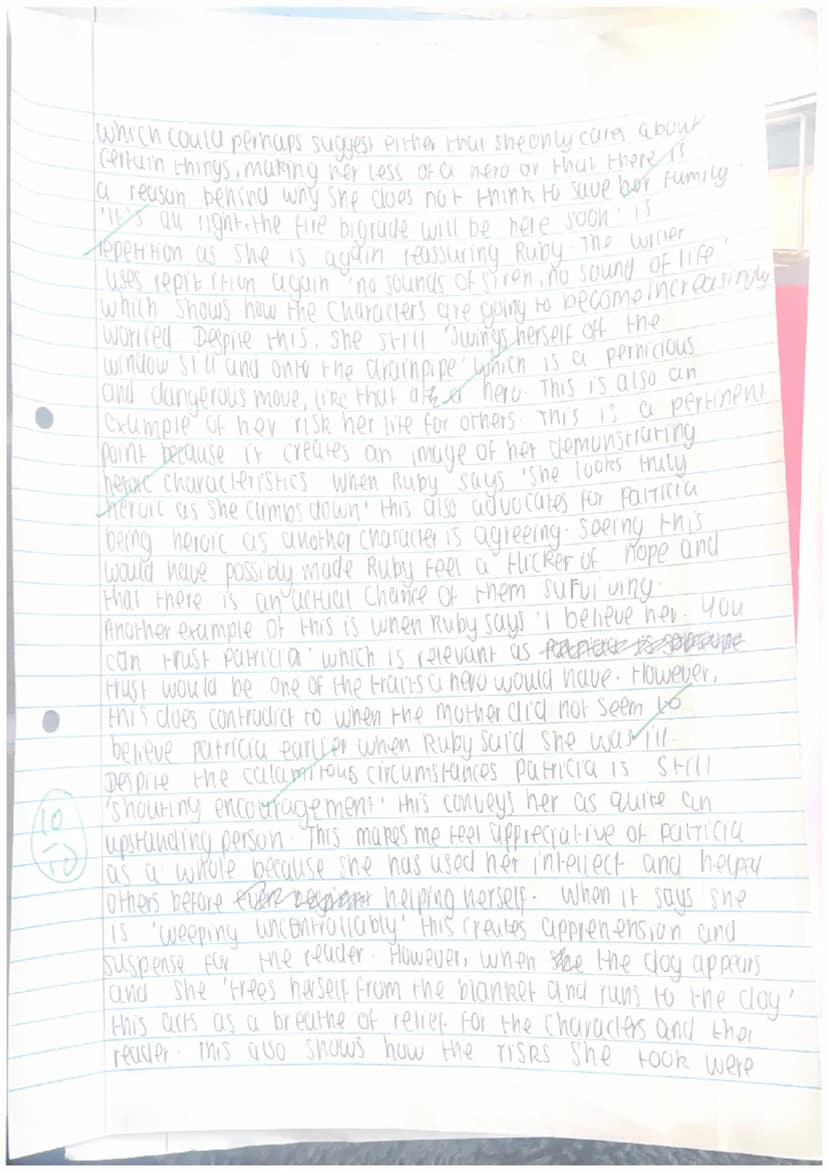 which could perhaps suggest either that she only cares about
certain things, making her less of a hero or that there is
a reason behind why she does not think to save her family.
'It's all right, the fire bigrade will be here soon' is
repetition as she is again reassuring Ruby. The writer
uses repitition again 'no sounds of siren, no sound of life'
which shows how the characters are going to become increasingly
worried. Despite this, she still 'swings herself off the
window sill and onto the drainpipe' which is a pernicious
and dangerous move, like that of a hero. This is also an
example of her risk her life for others. This is a pertinent
point because it creates an image of her demonstrating
heroic characteristics when Ruby says 'she looks truly
heroic as she climbs down' this also advocates for Patricia
being heroic as another character is agreeing. Seeing this
would have possibly made Ruby feel a flicker of hope and
that there is an actual chance of them surfuiving.
Another example of this is when Ruby says 'I believe her. You
can trust Patricia' which is relevant as
trust would be one of the traits a hero would have. However,
this does contradict to when the mother did not seem to
believe Patricia earlier when Ruby said she was ill.
Despite the calamitous circumstances Patricia is still
'shouting encouragement' this conveys her as quite an
10
10
upstanding person. This makes me feel appreciative of Patricia
as a whole because she has used her intellect and helped
others before helping herself. When it says she
is 'weeping uncontrollably' this creates apprehension and
suspense for the reader. However, when the dog appears
and she 'frees herself from the blanket and runs to the dog'
this acts as a breathe of relief for the characters and the
reader. This also shows how the risks she took were